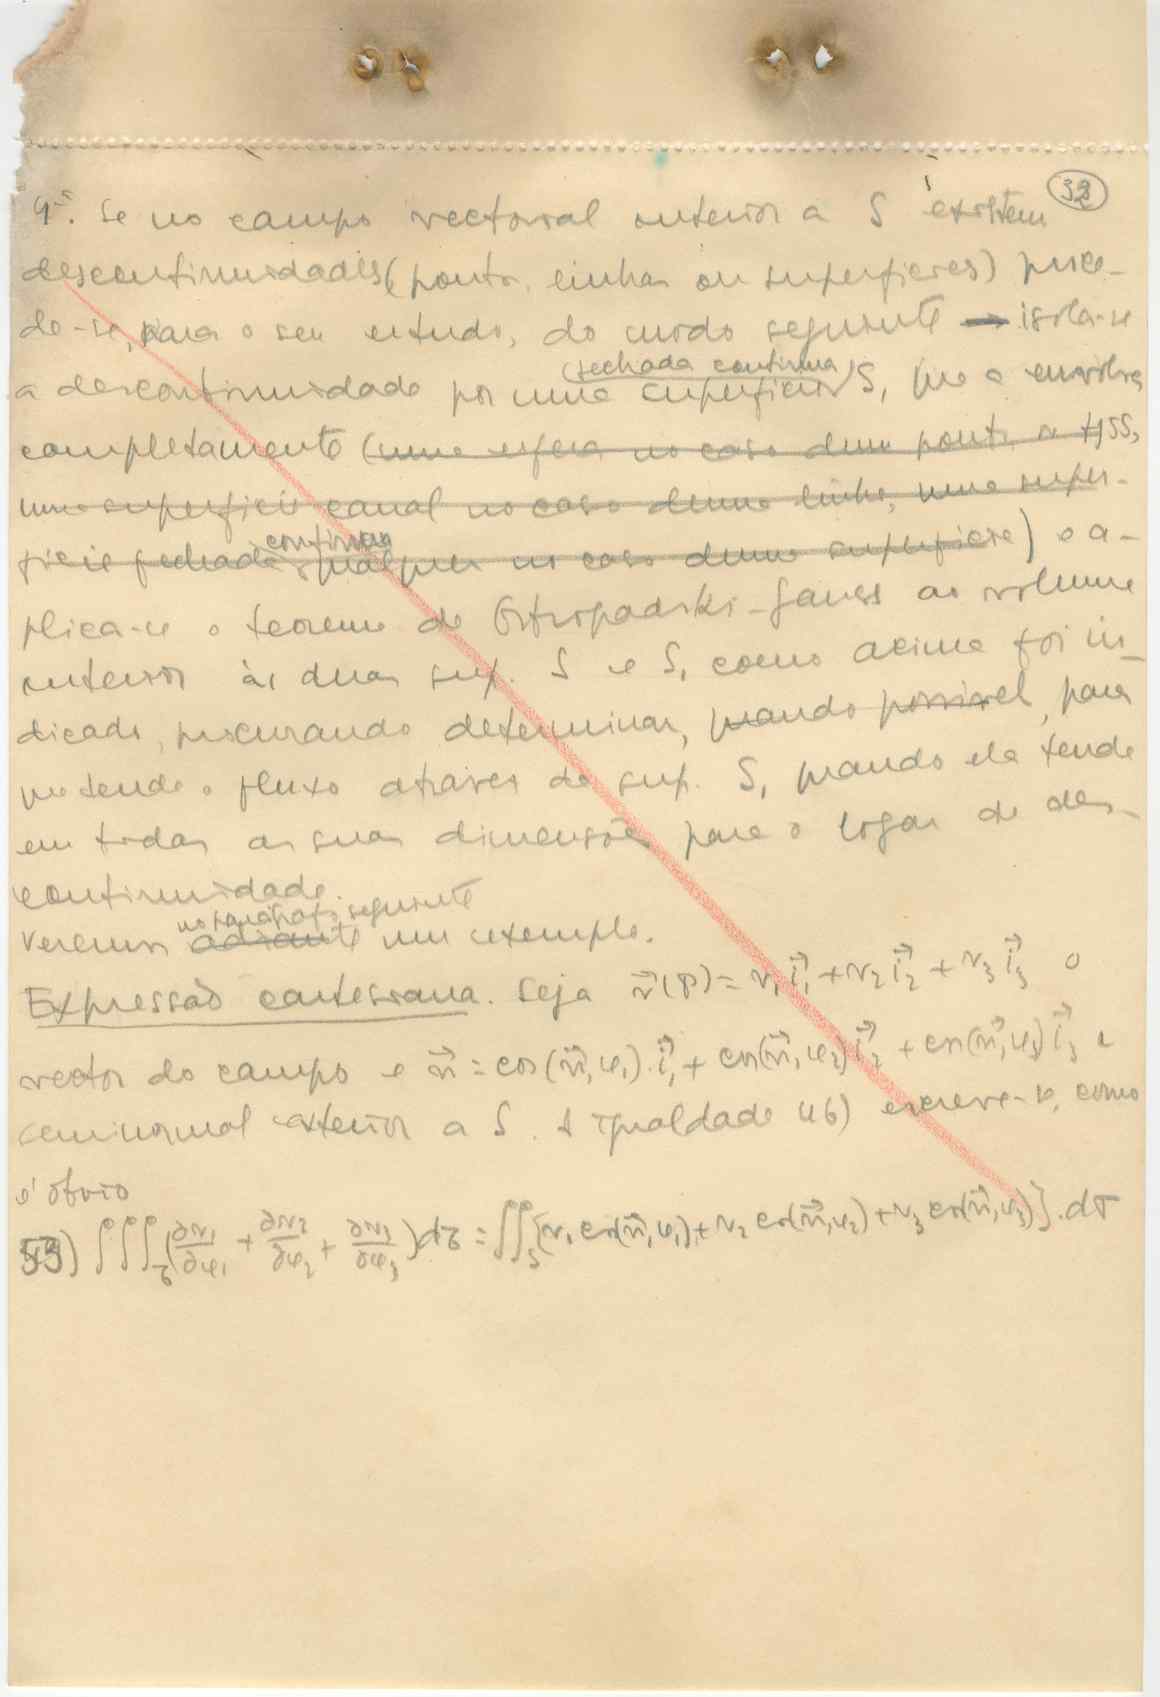 32
4º. Se no campo vectorial interior a S existem
descontinuidades (pontos, linhas ou superficies) proce-
de-se, para o seu estudo, do modo seguinte — isola-se
(fechada continua)
a descontinuidade por uma superficie S₁ que a envolva
completamente (uma esfera no caso dum ponto
uma superficie canal no caso duma linha, uma super-
continua
ficie fechada qualquer no caso duma superficie) e a-
plica-se o teorema de Ostrogradski-Gauss ao volume
interior às duas sup. S e S₁ como acima foi in-
dicado, procurando determinar, quando possivel, para
que tende o fluxo através da sup. S₁ quando ela tende
em todas as suas dimensões para o logar de des-
continuidade.
no paragrafo seguinte
Veremos adiante um exemplo.
Expressão cartesiana. Seja v⃗(P) = v₁i⃗₁ + v₂i⃗₂ + v₃i⃗₃ o
vector do campo e n⃗ = cos(n⃗,φ₁).i⃗₁ + cos(n⃗,φ₂)i⃗₂ + cos(n⃗,φ₃)i⃗₃ a
seminormal exterior a S. A igualdade 46) escreve-se, como
é obvio
53) ∫∫∫_τ (∂v₁/∂φ₁ + ∂v₂/∂φ₂ + ∂v₃/∂φ₃)dτ = ∫∫_S [v₁ cos(n⃗,φ₁) + v₂ cos(n⃗,φ₂) + v₃ cos(n⃗,φ₃)].dσ